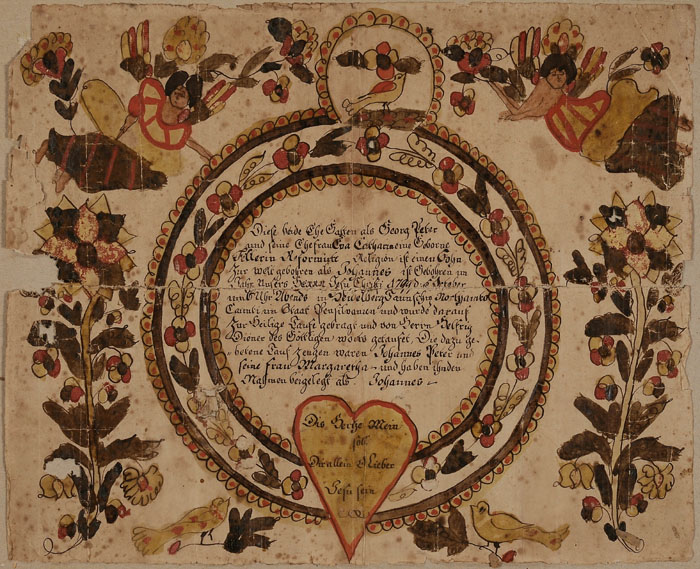 Diese beide Ehe Gatten als Georg Peter
und seine Ehefrau Eva Catharina eine Geborne
Religion ist einen Sohn
Zur Welt gebohren als Johannes ist Gebohren im
Jahr Unsers Herrn Jesu Christi October
um 6 Uhr Abends in Heidelberg Taunschip Northamton
Caunti im Staat Pensilvanien und wurde darauf
Zur Heilige Taufe gebragt und von Herrn Helfrig
Diener des Göttligen Worts getauft Die dazu ge-
betene Tauf Zeugen waren Johannes Peter un
seine frau Margaretha - und haben ihnden
Nahmen beigelegt als Johannes -
Dis Hertze Mein
sol
Dir allein O Lieber
Jesu sein